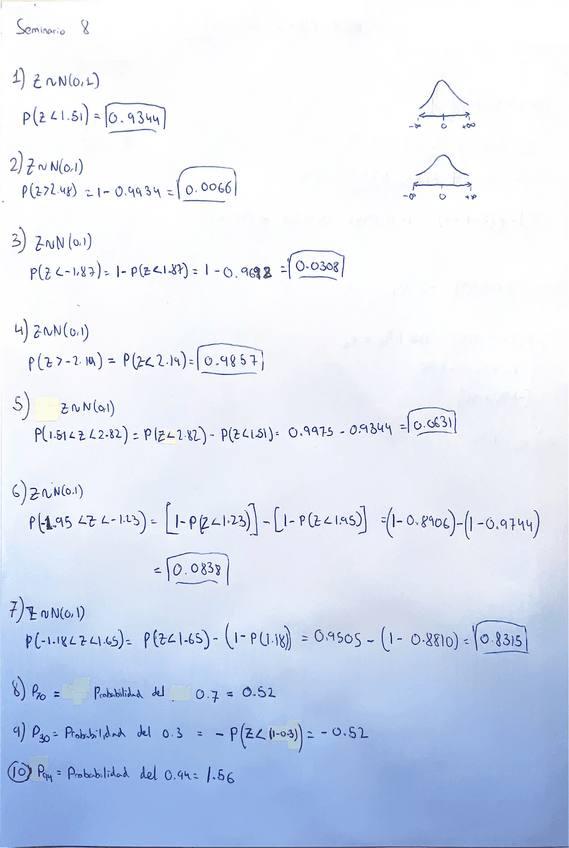 Seminario 8
1) Z~N(0,1)
P(Z<1.51) = 0.9344
-∞ 0 +∞
2) Z~N(0,1)
P(Z>2.48) = 1 - 0.9934 = 0.0066
-∞ 0 +∞
3) Z~N(0,1)
P(Z<-1.87) = 1-P(Z<1.87) = 1 - 0.9692 = 0.0308
4) Z~N(0,1)
P(Z>-2.19) = P(Z<2.19) = 0.9857
5) Z~N(0,1)
P(1.51<Z<2.82) = P(Z<2.82) - P(Z<1.51) = 0.9975 - 0.9344 = 0.0631
6) Z~N(0,1)
P(-1.95<Z<-1.23) = [1-P(Z<1.23)] - [1-P(Z<1.95)] = (1-0.8906)-(1-0.9744)
= 0.0838
7) Z~N(0,1)
P(-1.18<Z<1.65) = P(Z<1.65) - (1-P(1.18)) = 0.9505 - (1-0.8810) = 0.8315
8) P70 = Probabilidad del 0.7 = 0.52
9) P30 = Probabilidad del 0.3 = - P(Z<(1-0.3)) = -0.52
10) P94 = Probabilidad del 0.94 = 1.56